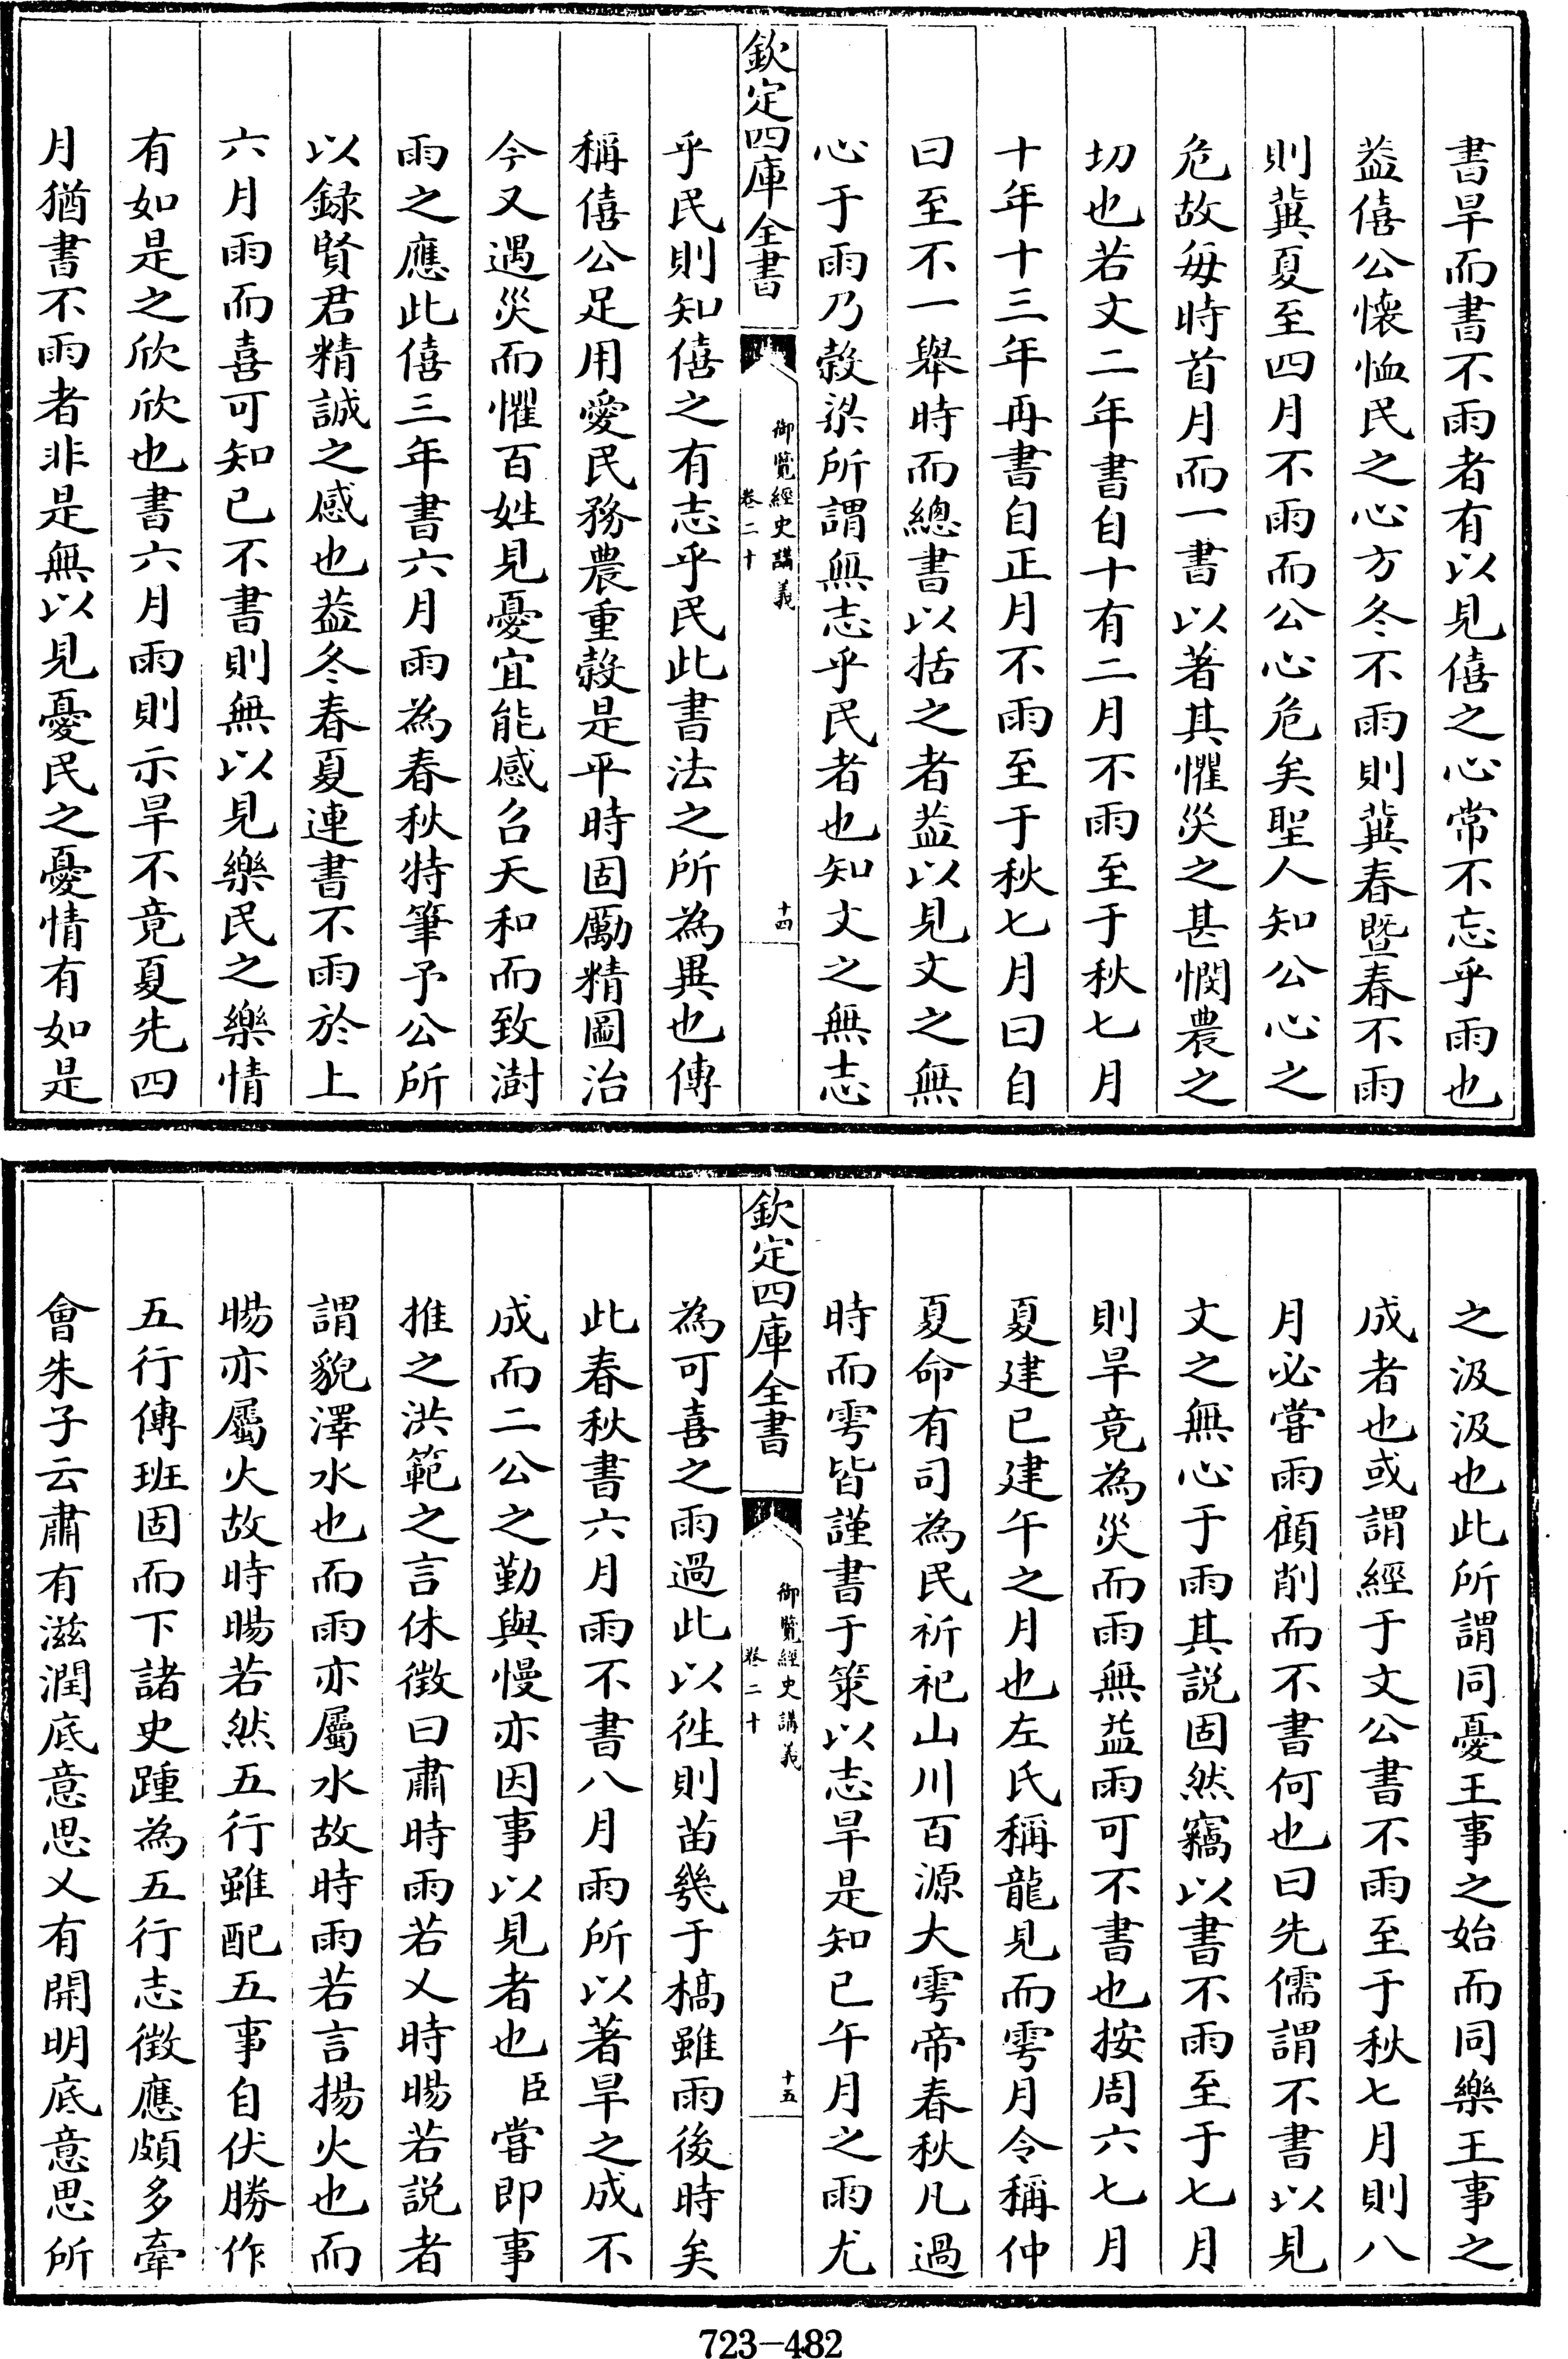 書旱而書不雨者有以見僖之心常不忘乎雨也
葢僖公懷恤民之心方冬不雨則冀春暨春不雨
則冀夏至四月不雨而公心危矣聖人知公心之
危故每時首月而一書以著其懼災之甚憫農之
切也若文二年書自十有二月不雨至于秋七月
十年十三年再書自正月不雨至于秋七月曰自
曰至不一舉時而總書以括之者葢以見文之無
心于雨乃穀梁所謂無志乎民者也知文之無志
欽定四庫全書
御覽經史講義
卷二十
十四
乎民則知僖之有志乎民此書法之所為異也傳
稱僖公足用愛民務農重穀是平時固勵精圖治
今又遇災而懼百姓見憂宜能感召天和而致澍
雨之應此僖三年書六月雨為春秋特筆予公所
以録賢君精誠之感也葢冬春夏連書不雨於上
六月雨而喜可知已不書則無以見樂民之樂情
有如是之欣欣也書六月雨則示旱不竟夏先四
月猶書不雨者非是無以見憂民之憂情有如是
之汲汲也此所謂同憂王事之始而同樂王事之
成者也或謂經于文公書不雨至于秋七月則八
月必嘗雨顧削而不書何也曰先儒謂不書以見
文之無心于雨其説固然竊以書不雨至于七月
則旱竟為災而雨無益雨可不書也按周六七月
夏建已建午之月也左氏稱龍見而雩月令稱仲
夏命有司為民祈祀山川百源大雩帝春秋凡過
時而雩皆謹書于䇿以志旱是知已午月之雨尤
欽定四庫全書
御覽經史講義
卷二十
十五
為可喜之雨過此以徃則苗幾于槁雖雨後時矣
此春秋書六月雨不書八月雨所以著旱之成不
成而二公之勤與慢亦因事以見者也臣嘗即事
推之洪範之言休徴曰肅時雨若乂時暘若説者
謂貌澤水也而雨亦屬水故時雨若言揚火也而
暘亦屬火故時暘若然五行雖配五事自伏勝作
五行傳班固而下諸史踵為五行志徴應頗多牽
會朱子云肅有滋潤底意思乂有開明底意思所
723-482